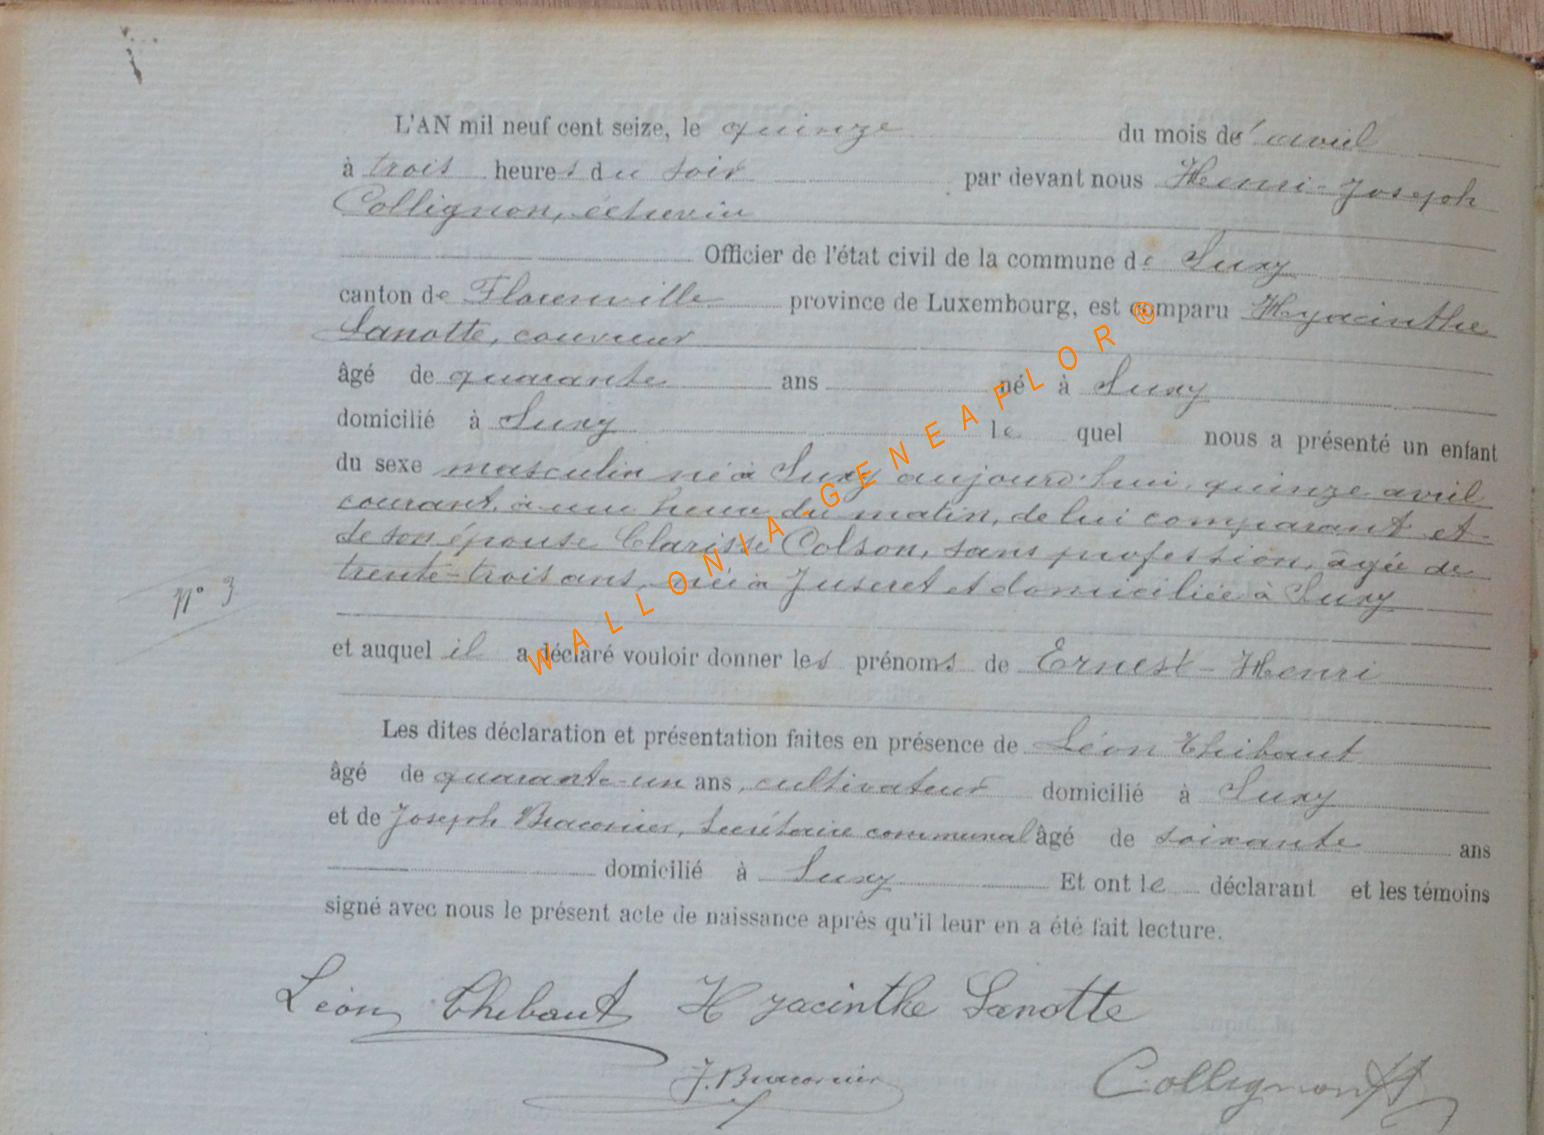 L'AN mil neuf cent seize, le quinze du mois de avril
à trois heures du soir par devant nous Henri-Joseph
Collignon, échevin
Officier de l'état civil de la commune de Suxy
canton de Florenville province de Luxembourg, est comparu Hyacinthe
Lanotte, couvreur
âgé de quarante ans né à Suxy
domicilié à Suxy lequel nous a présenté un enfant
du sexe masculin né à Suxy aujourd'hui, quinze avril
courant, à une heure du matin, de lui comparant et
de son épouse Clarisse Colson, sans profession, âgée de
trente-trois ans, née à Juseret et domiciliée à Suxy
N° 3
et auquel il a déclaré vouloir donner les prénoms de Ernest-Henri
Les dites déclaration et présentation faites en présence de Léon Thibaut
âgé de quarante-un ans, cultivateur domicilié à Suxy
et de Joseph Braconier, secrétaire communal âgé de soixante ans
domicilié à Suxy Et ont le déclarant et les témoins
signé avec nous le présent acte de naissance après qu'il leur en a été fait lecture.
Léon Thibaut Hyacinthe Lanotte
J. Braconier Collignon
WALLONIA-GENEAFLOR ®